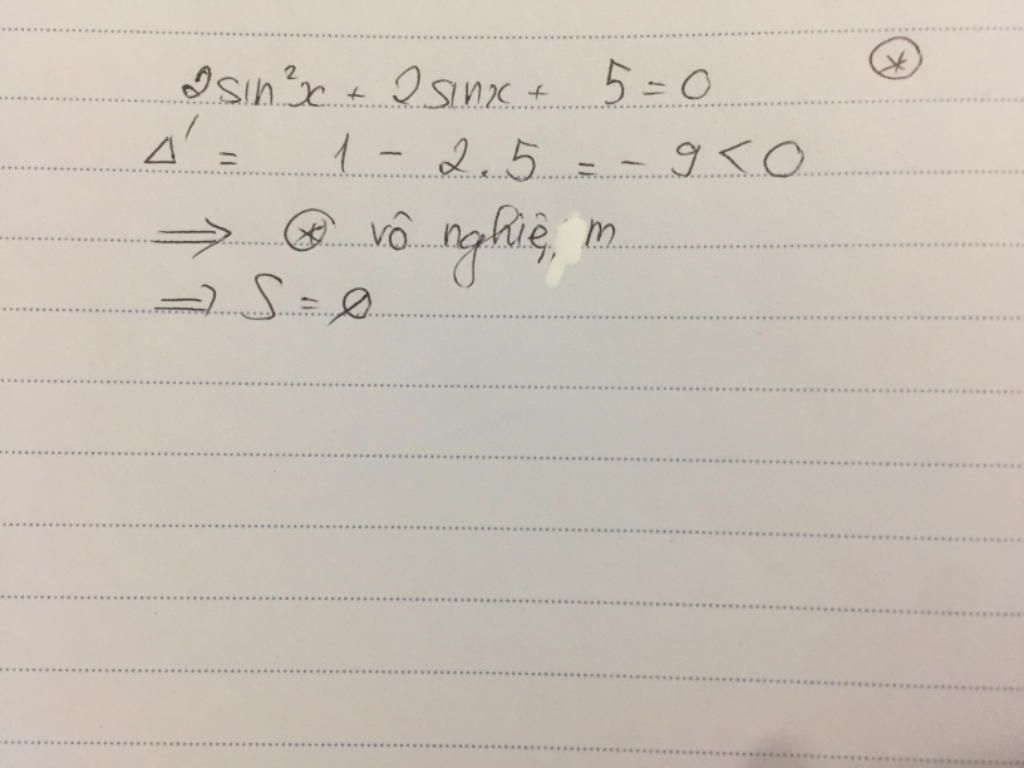 2sin²x + 2sinx + 5 = 0 ⊛
Δ' = 1 - 2.5 = - 9 < 0
⇒ ⊛ vô nghiệm
⇒ S = ∅